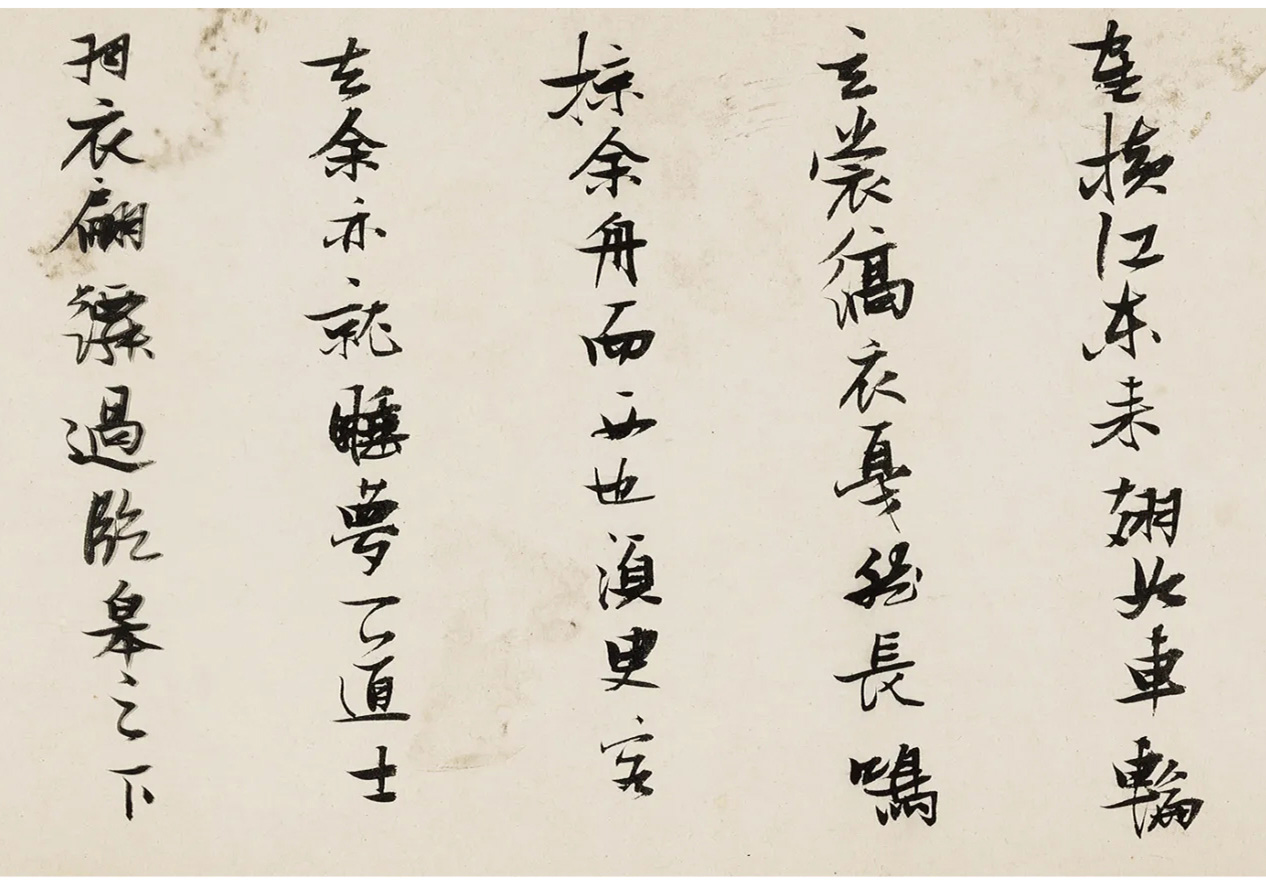 隺橫江東来翅如車輪
玄裳縞衣戛然長鳴
掠余舟而西也須臾客
去余亦就睡夢二道士
羽衣翩躚過臨皋之下